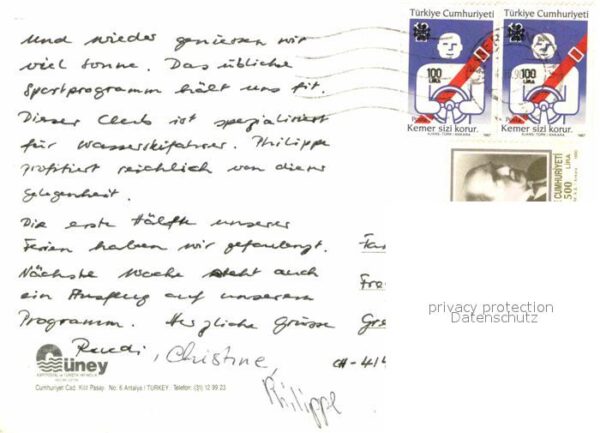 Und wieder geniessen wir
viel Sonne. Das übliche
Sportprogramm hält uns fit.
Dieser Club ist spezialisiert
für Wasserskifahrer. Philippe
profitiert reichlich von dieser
Gelegenheit.
Die erste Hälfte unserer
Ferien haben wir gefaulenzt.
Nächste Woche steht auch
ein Ausflug auf unserem
Programm. Herzliche Grüsse
Ruedi, Christine,
Philippe
Türkiye Cumhuriyeti
100
LIRA
Posta
Kemer sizi korur.
1987
Türkiye Cumhuriyeti
100
LIRA
Posta
Kemer sizi korur.
1987
CUMHURİYETİ
500 LIRA
Fa
Fr
Gr
CH-41
privacy protection
Datenschutz
Güney
Cumhuriyet Cad. Kilit Pasajı No: 6 Antalya / TURKEY - Telefon: (31) 12 99 23